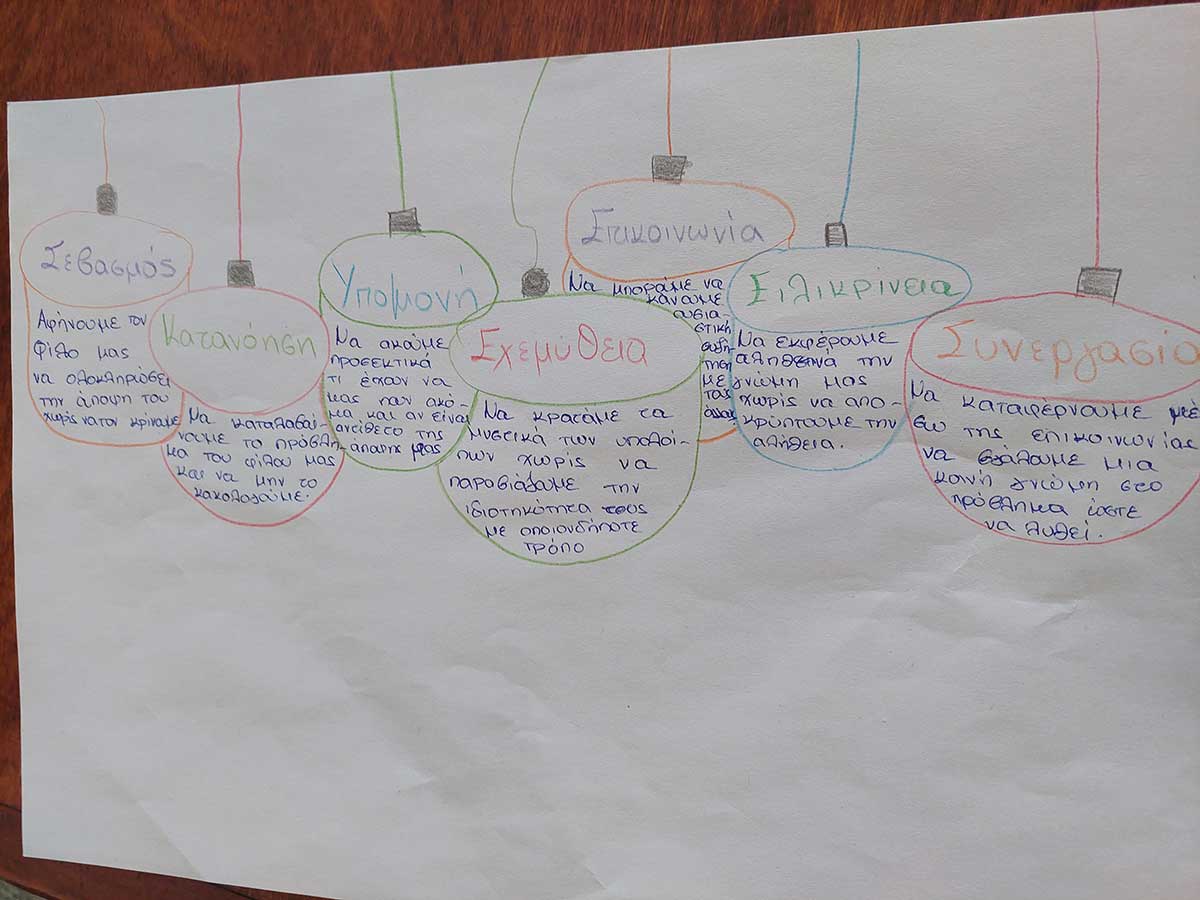 Σεβασμός
Αφήνουμε τον
φίλο μας
να ολοκληρώσει
την άποψη του
χωρίς να τον κρίνουμε
Κατανόηση
Να καταλαβαί-
νουμε το πρόβλη-
μα του φίλου μας
και να μην το
κακολογούμε.
Υπομονή
Να ακούμε
προσεκτικά
τι έχουν να
μας πουν ακό-
μα και αν είναι
αντίθετο της
άποψης μας
Εχεμύθεια
Να κρατάμε τα
μυστικά των υπολοί-
πων χωρίς να
παροσιάζουμε την
ιδιοτηκότητα τους
με οποιονδήποτε
τρόπο
Επικοινωνία
Να μποράμε να
κάνουμε
ουσια-
στική
συζή-
τηση
με
τους
άλλους
Ειλικρίνεια
Να εκφέρουμε
αληθεινά την
γνώμη μας
χωρίς να απο-
κρύπτουμε την
αλήθεια.
Συνεργασία
Να καταφέρνουμε μέ-
σω της επικοινωνίας
να βγάλουμε μια
κοινή γνώμη στο
πρόβλημα ώστε
να λυθεί.